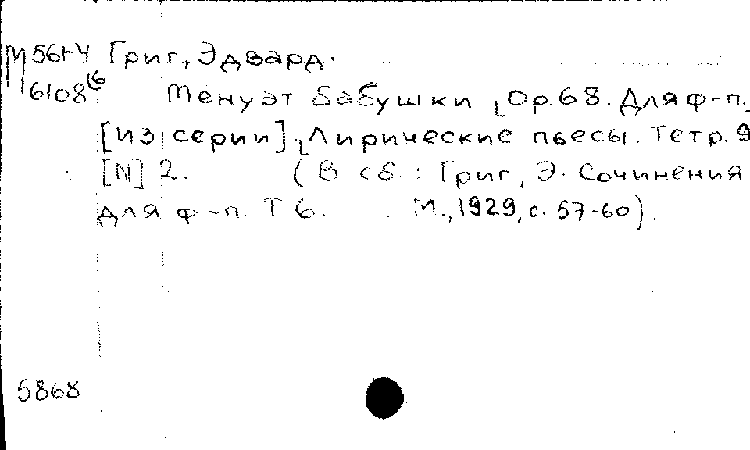 М 56г4 Григ, Эдвард.
М 6108(6 Менуэт бабушки, Op.68. Для ф-п.
[Из серии], Лирические пьесы. Тетр. 9
[N] 2. (В сб.: Григ, Э. Сочинения
для ф-п. Т 6. М., 1929, с. 57-60).
5868